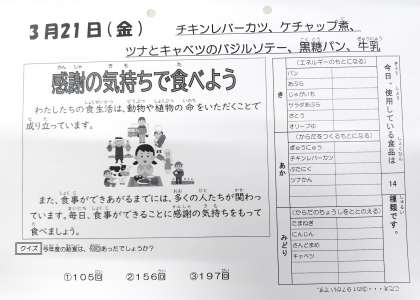 3月21日(金)
チキンレバーカツ、ケチャップ煮、
ツナとキャベツのバジルソテー、黒糖パン、牛乳
感謝の気持ちで食べよう
わたしたちの食生活は、動物や植物の命をいただくことで
成り立っています。
また、食事ができあがるまでには、多くの人たちが関わっ
ています。毎日、食事ができることに感謝の気持ちをもって
食べましょう。
クイズ 今年度の給食は、何回あったでしょうか?
①105回 ②156回 ③197回
き
(エネルギーのもとになる)
パン
あぶら
じゃがいも
サラダあぶら
さとう
オリーブゆ
あか
(からだをつくるもとになる)
ぎゅうにゅう
チキンレバーカツ
ぶたにく
ツナかん
みどり
(からだのちょうしをととのえる)
たまねぎ
にんじん
さんどまめ
キャベツ
今日、使用している食品は
14
種類です。